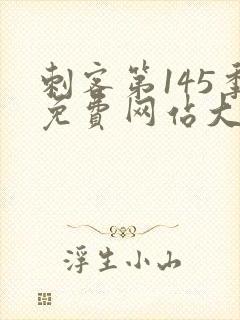 刺客第145季
免費网佔大
浮生小山